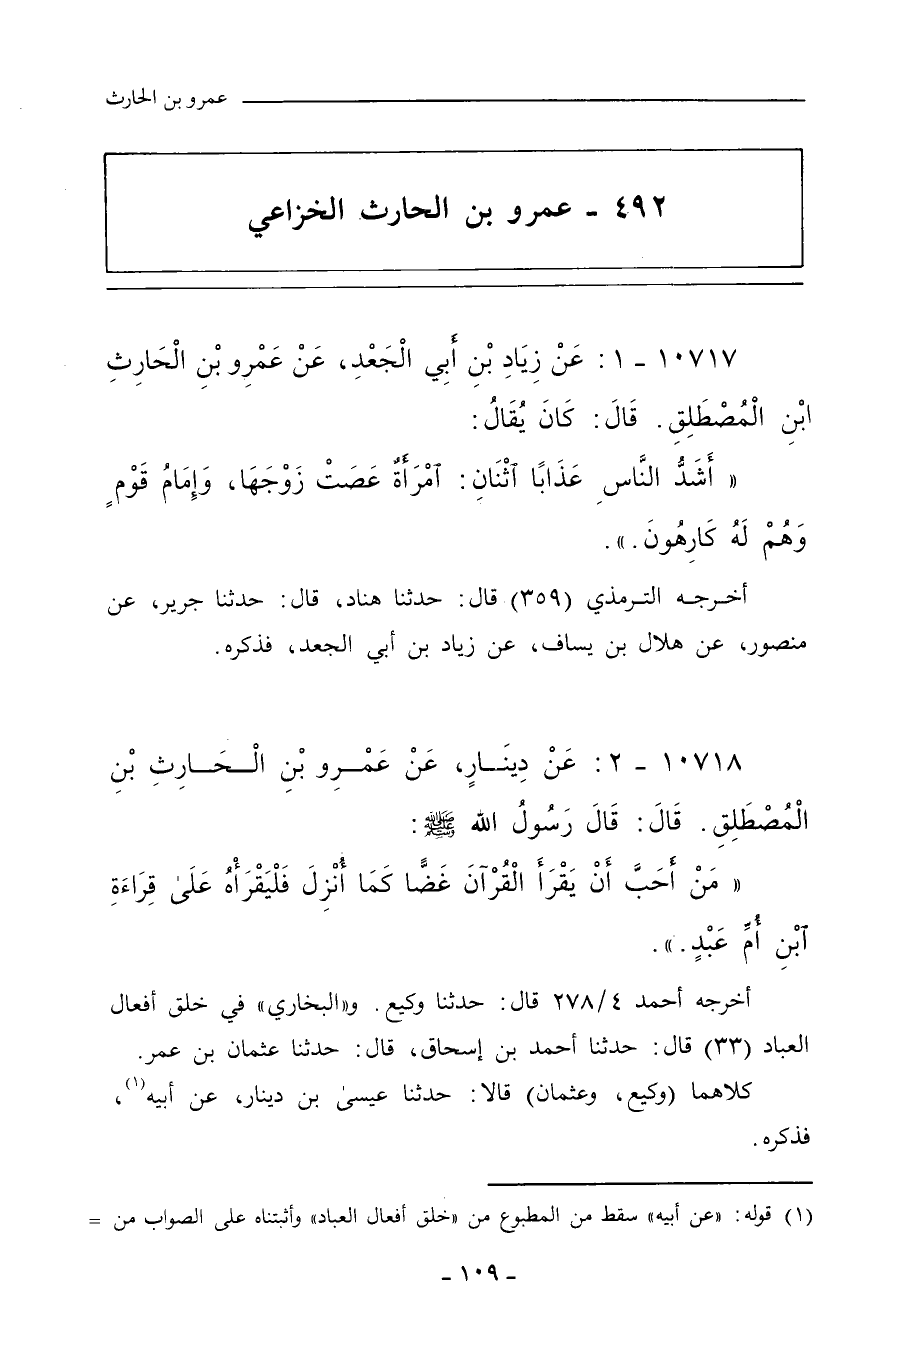 عمرو بن الحارث
٤٩٢ - عمرو بن الحارث الخزاعي
١٠٧١٧ - ١ : عَنْ زِيَادِ بْنِ أَبِي الْجَعْدِ، عَنْ عَمْرِو بْنِ الْحَارِثِ
ابْنِ الْمُصْطَلِقِ. قَالَ: كَانَ يُقَالُ:
« أَشَدُّ النَّاسِ عَذَابًا ٱثْنَانِ: ٱمْرَأَةٌ عَصَتْ زَوْجَهَا، وَإِمَامُ قَوْمٍ
وَهُمْ لَهُ كَارِهُونَ.».
أخرجه الترمذي (٣٥٩) قال: حدثنا هناد، قال: حدثنا جرير، عن
منصور، عن هلال بن يساف، عن زياد بن أبي الجعد، فذكره.
١٠٧١٨ - ٢ : عَنْ دِينَارٍ، عَنْ عَمْرِو بْنِ الْحَارِثِ بْنِ
الْمُصْطَلِقِ. قَالَ: قَالَ رَسُولُ الله ﷺ:
« مَنْ أَحَبَّ أَنْ يَقْرَأَ الْقُرْآنَ غَضًّا كَمَا أُنْزِلَ فَلْيَقْرَأْهُ عَلَىٰ قِرَاءَةِ
ٱبْنِ أُمِّ عَبْدٍ.».
أخرجه أحمد ٢٧٨/٤ قال: حدثنا وكيع. و«البخاري» في خلق أفعال
العباد (٣٣) قال: حدثنا أحمد بن إسحاق، قال: حدثنا عثمان بن عمر.
كلاهما (وكيع، وعثمان) قالا: حدثنا عيسىٰ بن دينار، عن أبيه(١)،
فذكره.
(١) قوله: «عن أبيه» سقط من المطبوع من «خلق أفعال العباد» وأثبتناه على الصواب من =
- ١٠٩ -